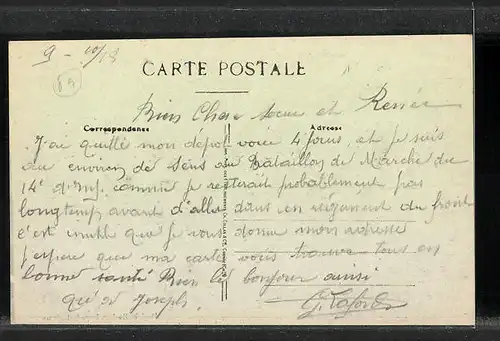 9 - 10/18
89
CARTE POSTALE
Bien Chère sœur et Renée
Correspondance Adresse
J'ai quitté mon dépôt voici 4 jours, et je suis
au environ de Sens au Bataillon de Marche du
14e d'Inf. comme je resterait probablement pas
longtemp avant d'aller dans un régiment du front
c'est inutile que je vous donne mon adresse
j'espère que ma carte vous trouve tous en
bonne santé Bien le bonjour ainsi
qu'a Joseph.